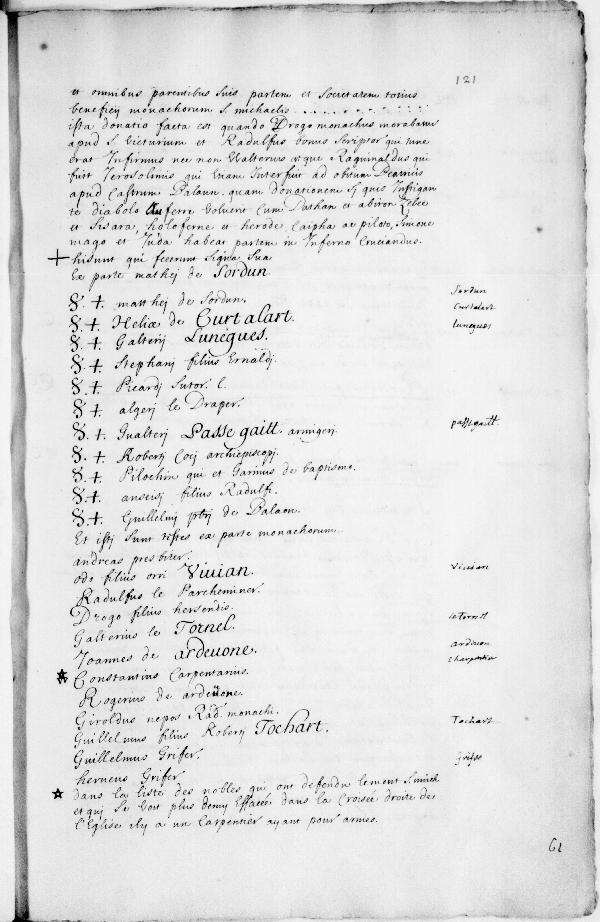 121
et omnibus parentibus suis partem et Societatem totius
beneficij monachorum S. michaelis . . . . . . . . . . . .
ista donatio facta est quando Drogo monachus morabatur
apud S. victurium et Radulfus bonus Scriptor qui tunc
erat Infirmus nec non Valterus atque Raguinaldus qui
fuit Jerosolimis qui etiam Interfuit ad obitum
apud Castrum Palaun. quam donationem Sj quis Instigan
te diabolo Auferre voluerit Cum Dathan et abiron Zebee
et Sisara, holoferne et herode Caipha ac piloto, Simone
mago et Juda habeat partem in Inferno Cruciandus.
+ hisunt qui fecerunt Signa Sua
Ex parte mathej de Sordun
S. +. matthej de Sordun. Sordun
S. +. Heliæ de Curtalart. Curtalart
S. +. Galterij Lunegues. lunegues
S. +. Stephanj filius Ernaldj.
S. +. Picardj Sutor. C.
S. +. algerj le Draper.
S. +. Gualterij Passe gaitt. armigerj. passegaitt.
S. +. Roberij Cocj archiepiscopj.
S. +. Pilochin qui et Garinus de baptismo.
S. +. anseisj filius Radulfi.
S. +. Guillelmj ptrj de Palaon.
Et istj Sunt testes ex parte monachorum.
andreas presbiter.
odo filius orri Vivian. Vivian
Radulfus le Parcheminer.
Drogo filius hersendis.
Galterius le Tornel. le Tornel
Joannes de ardeuone. ardeuon
☆ Constantius Carpentarius. Charpentier
Rogerius de ardeüone.
Giroldus nepos Rad. monachi.
Guillelmus filius Roberij Tochart. Tochart
Guillelmus Grifer. Grifer
herueus Grifer
☆ dans la liste des nobles qui ont defendu le mont S. mich
et qui Se voit plus demy Effacée dans la Croisée droite de
l'Eglise ily a un Carpentier ayant pour armes.
61